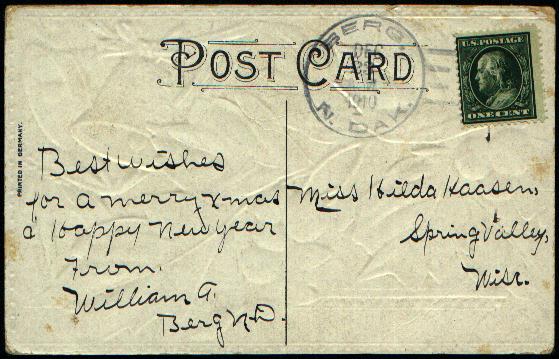 POST CARD
BERG
DEC
1910
N. DAK.
U.S. POSTAGE
ONE CENT
PRINTED IN GERMANY.
Best wishes
for a merry x-mas
a Happy New year
From.
William A.
Berg N.D.
Miss Hilda Haasen,
Spring Valley,
Wisc.